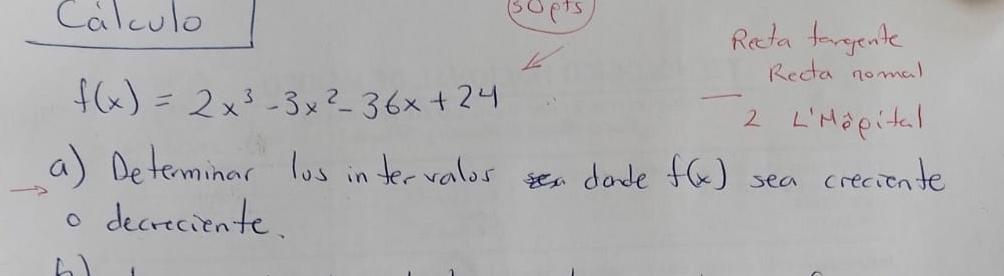 Cálculo
30pts
Recta tangente
Recta normal
2 L'Hôpital
f(x) = 2x³ - 3x² - 36x + 24
a) Determinar los intervalos donde f(x) sea creciente
o decreciente.
b)